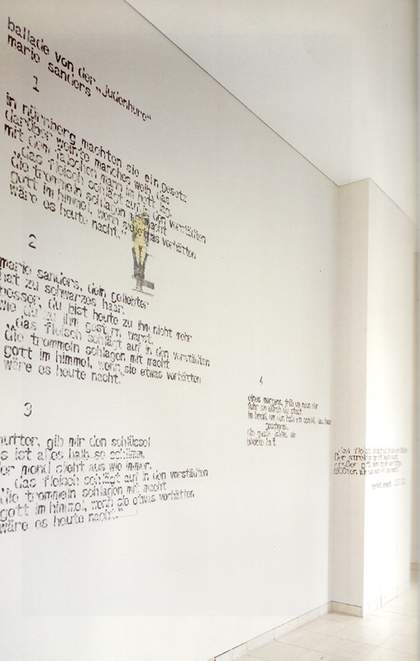 ballade von der „judenhure"
marie sanders
1
in nürnberg machten sie ein gesetz
darüber weinte manches weib, das
mit dem falschen mann im bett lag.
„das fleisch schlägt auf in den vorstädten
die trommeln schlagen mit macht
gott im himmel, wenn sie etwas vorhätten
wäre es heute nacht.
2
marie sanders, dein geliebter
hat zu schwarzes haar.
besser, du bist heute zu ihm nicht mehr
wie du zu ihm gestern warst.
„das fleisch schlägt auf in den vorstädten
die trommeln schlagen mit macht
gott im himmel, wenn sie etwas vorhätten
wäre es heute nacht.
3
mutter, gib mir den schlüssel
es ist alles halb so schlimm.
der mond sieht aus wie immer.
„das fleisch schlägt auf in den vorstädten
die trommeln schlagen mit macht
gott im himmel, wenn sie etwas vorhätten
wäre es heute nacht."
4
eines morgens, früh um neun uhr
fuhr sie durch die stadt
im hemd, um den hals ein schild, das haar
geschoren.
die gasse johlte. sie
blickte kalt